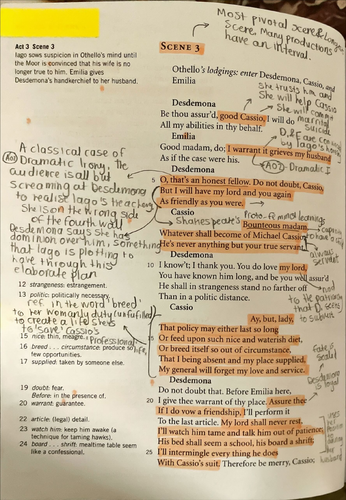 Most pivotal scene & longest
Scene, Many productions
have an interval.
Act 3 Scene 3
Iago sows suspicion in Othello's mind until
the Moor is convinced that his wife is
no longer true to him. Emilia gives
Desdemona's handkerchief to her husband.
SCENE 3
Othello's lodgings: enter Desdemona, Cassio, and
Emilia
She trusts him and
She will help Cassio
She will
marital
suicide
Desdemona
Be thou assur'd, good Cassio, I will do
All my abilities in thy behalf.
Emilia
D & E are
by Iago's
Good madam, do; I warrant it grieves my husband
As if the case were his.
AO2 Dramatic I
A classical case of
AO2 Dramatic Irony, the
audience is all but
Screaming at Desdemona
to realise Iago's treachery
She is on the wrong side
of the fourth wall
Desdemona
5 O, that's an honest fellow. Do not doubt, Cassio,
But I will have my lord and you again
As friendly as you were.
Cassio
Shakespeare's Proto-feminist leanings
Bounteous madam,
Whatever shall become of Michael Cassio,
He's never anything but your true servant.
always
Desdemona says she has
dominion over him, something
that Iago is plotting to
have through this
elaborate plan
Desdemona
10 I know't; I thank you. You do love my lord,
You have known him long, and be you well assur'd
He shall in strangeness stand no farther off
Than in a politic distance.
to the
to submit
12 strangeness: estrangement.
13 politic: politically necessary.
ref. in the word 'breed'
to her womanly duty unfulfilled
to create a life she's
to 'save' Cassio's
Professional life
15 nice: thin, meagre.
16 breed . . . circumstance: produce so
few opportunities.
17 supplied: taken by someone else.
Cassio
Ay, but, lady,
That policy may either last so long
15 Or feed upon such nice and waterish diet,
Or breed itself so out of circumstance,
That I being absent and my place supplied,
My general will forget my love and service.
Desdemona
Do not doubt that. Before Emilia here,
20 I give thee warrant of thy place. Assure thee
If I do vow a friendship, I'll perform it
To the last article. My lord shall never rest.
I'll watch him tame and talk him out of patience;
His bed shall seem a school, his board a shrift;
25 I'll intermingle every thing he does
With Cassio's suit. Therefore be merry, Cassio;
Desdemona
is loyal
19 doubt: fear.
Before: in the presence of.
20 warrant: guarantee.
22 article: (legal) detail.
23 watch him: keep him awake (a
technique for taming hawks).
24 board . . . shrift: mealtime table seem
like a confessional.